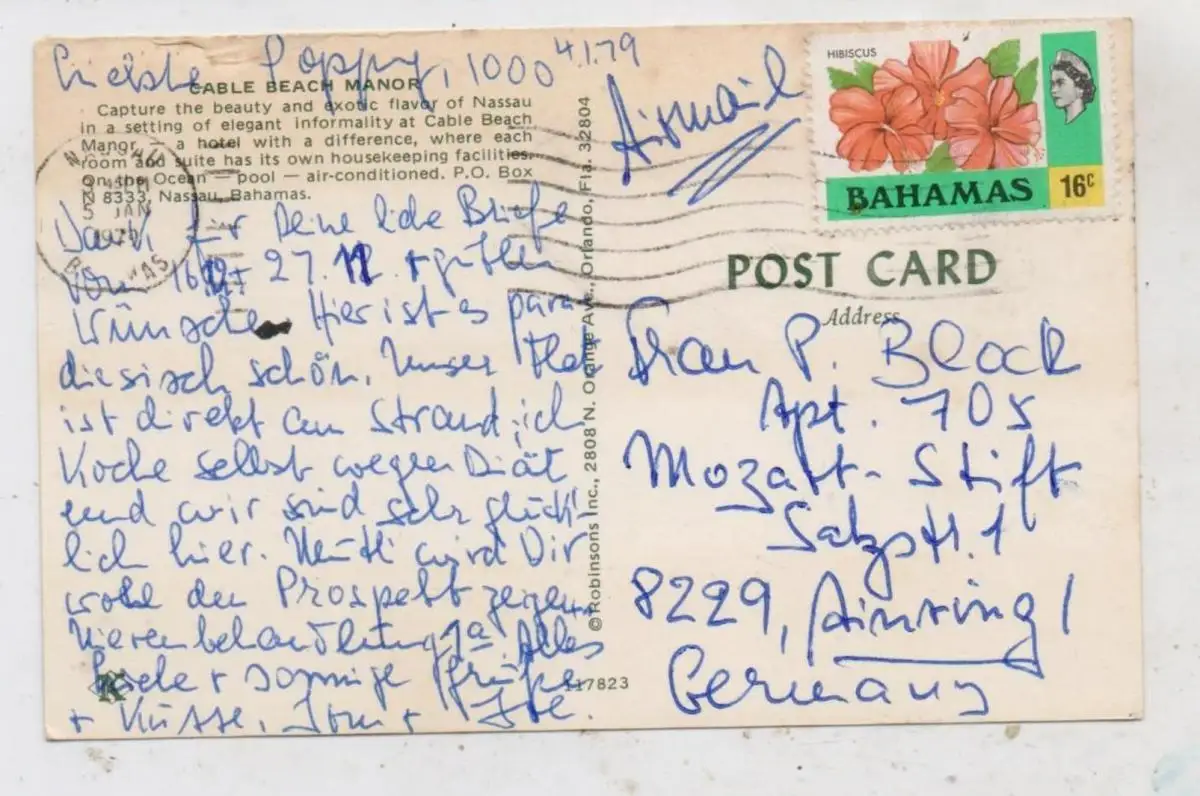 Liebste Poppy, 1000 4.1.79
CABLE BEACH MANOR
Capture the beauty and exotic flavor of Nassau
in a setting of elegant informality at Cable Beach
Manor, a hotel with a difference, where each
room and suite has its own housekeeping facilities.
On the Ocean — pool — air-conditioned. P.O. Box
N 8333, Nassau, Bahamas.
5 JAN
1979
Dank für Deine liebe Briefe
vom 16.12. + 27.12. + guten
Wünsche. Hier ist es para
diesisch schön. Unser
ist direkt am Strand, ich
koche selbst wegen Diät
und wir sind sehr glück
lich hier. wird Dir
wohl den Prospekt zeigen.
Nierenbehandlung 1a. Alles
Liebe + sonnige Grüße
+ Küsse,
©Robinsons Inc., 2808 N. Orange Ave., Orlando, Fla. 32804
117823
Airmail
HIBISCUS
BAHAMAS 16c
POST CARD
Address
Frau P. Block
Apt. 705
Mozart-Stift
Salzstr. 1
8229, Ainring 1
Germany